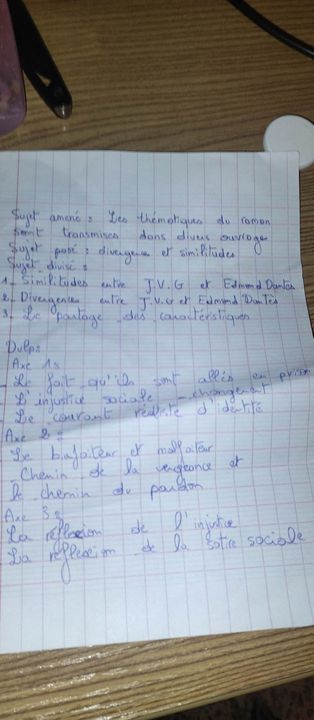 Sujet amené : Les thématiques du roman
sont transmises dans divers ouvrage
Sujet posé : divergence et similitudes
Sujet divisé :
1. Similitudes entre J.V.G et Edmond Dantès
2. Divergences entre J.V.G et Edmond Dantès
3. Le partage des caractéristiques
Dvlp :
Axe 1 :
- Le fait qu'ils sont allés en prison
- L'injustice sociale changeant
- Le courant réaliste d'identité
Axe 2 :
Le biafaiteur et malfaiteur
- Chemin de la vengeance et
le chemin du pardon
Axe 3 :
La réflexion de l'injustice
La réflexion de la satire sociale